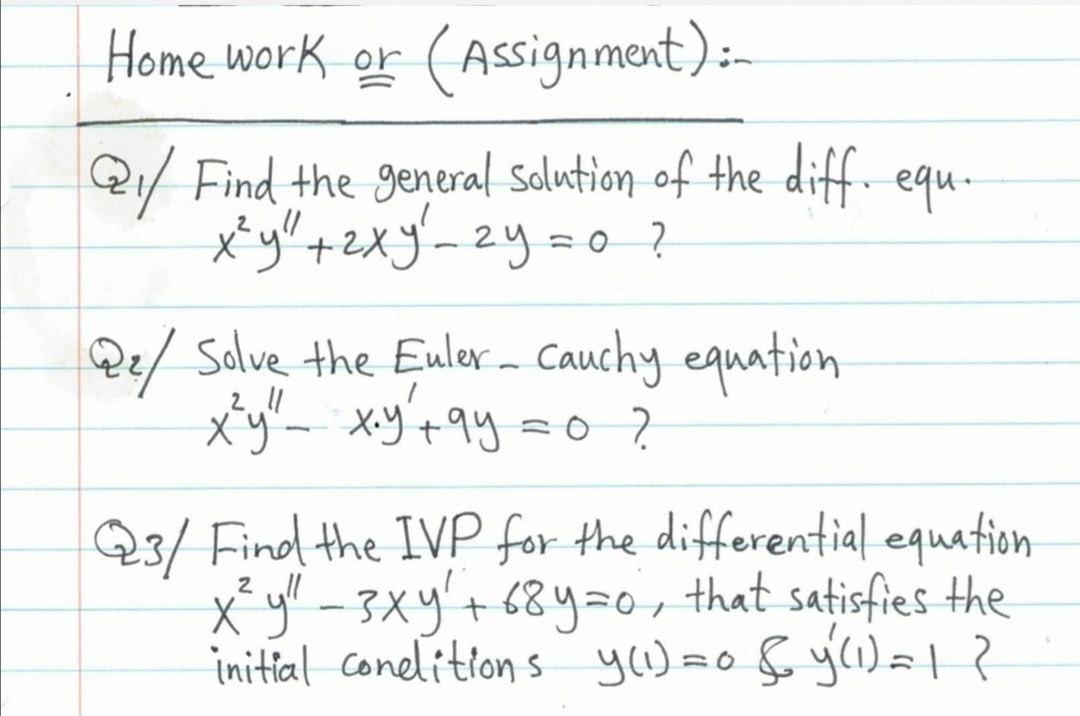 Home work or (Assignment):-
Q1/ Find the general solution of the diff. equ.
x²y''+2xy'-2y=0 ?
Q2/ Solve the Euler-Cauchy equation
x²y''- x.y'+9y=0 ?
Q3/ Find the IVP for the differential equation
x²y''-3xy'+68y=0, that satisfies the
initial conditions y(1)=0 & y'(1)=1 ?